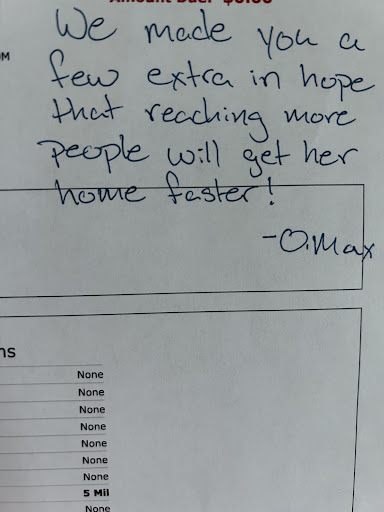 We made you a
few extra in hope
that reaching more
people will get her
home faster!
-O.Max
ns
None
None
None
None
None
None
None
5 Mil
None